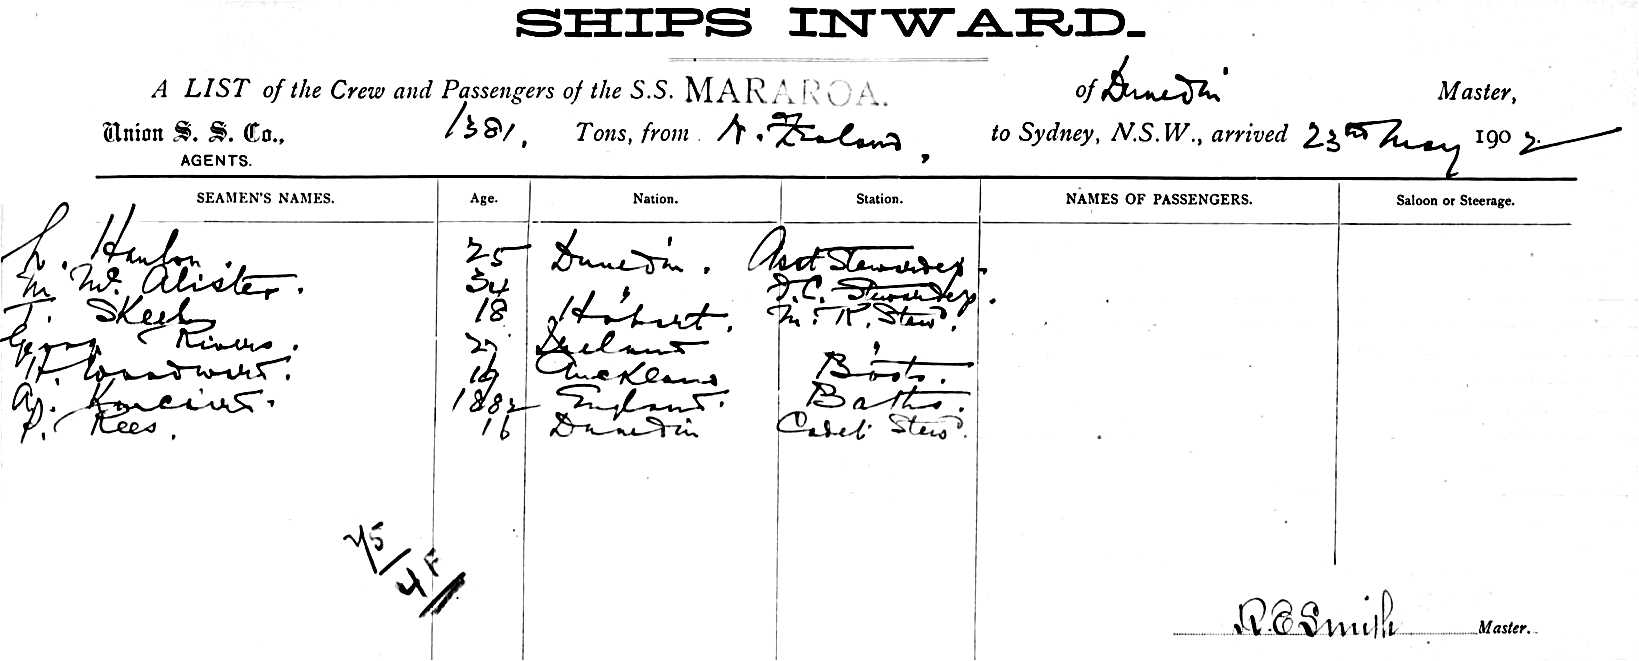 SHIPS INWARD.
A LIST of the Crew and Passengers of the S.S. MARAROA. of Dunedin Master,
Union S. S. Co., 1381, Tons, from N. Zealand, to Sydney, N.S.W., arrived 23rd May 1902
AGENTS.
SEAMEN'S NAMES. Age. Nation. Station. NAMES OF PASSENGERS. Saloon or Steerage.
L. Hanlon. 25 Dunedin. Asst Stewardess.
M. McAlister. 34 " F.C. Stewardess.
T. Skeels 18 Hobart. M. R. Stewd.
George Rivers. 27 Ireland "
H. Woodward. 19 Auckland Boots.
A. 1882 England. Baths.
P. Rees. 16 Dunedin Cadet Stewd.
75/4F
R. E. Smith Master.